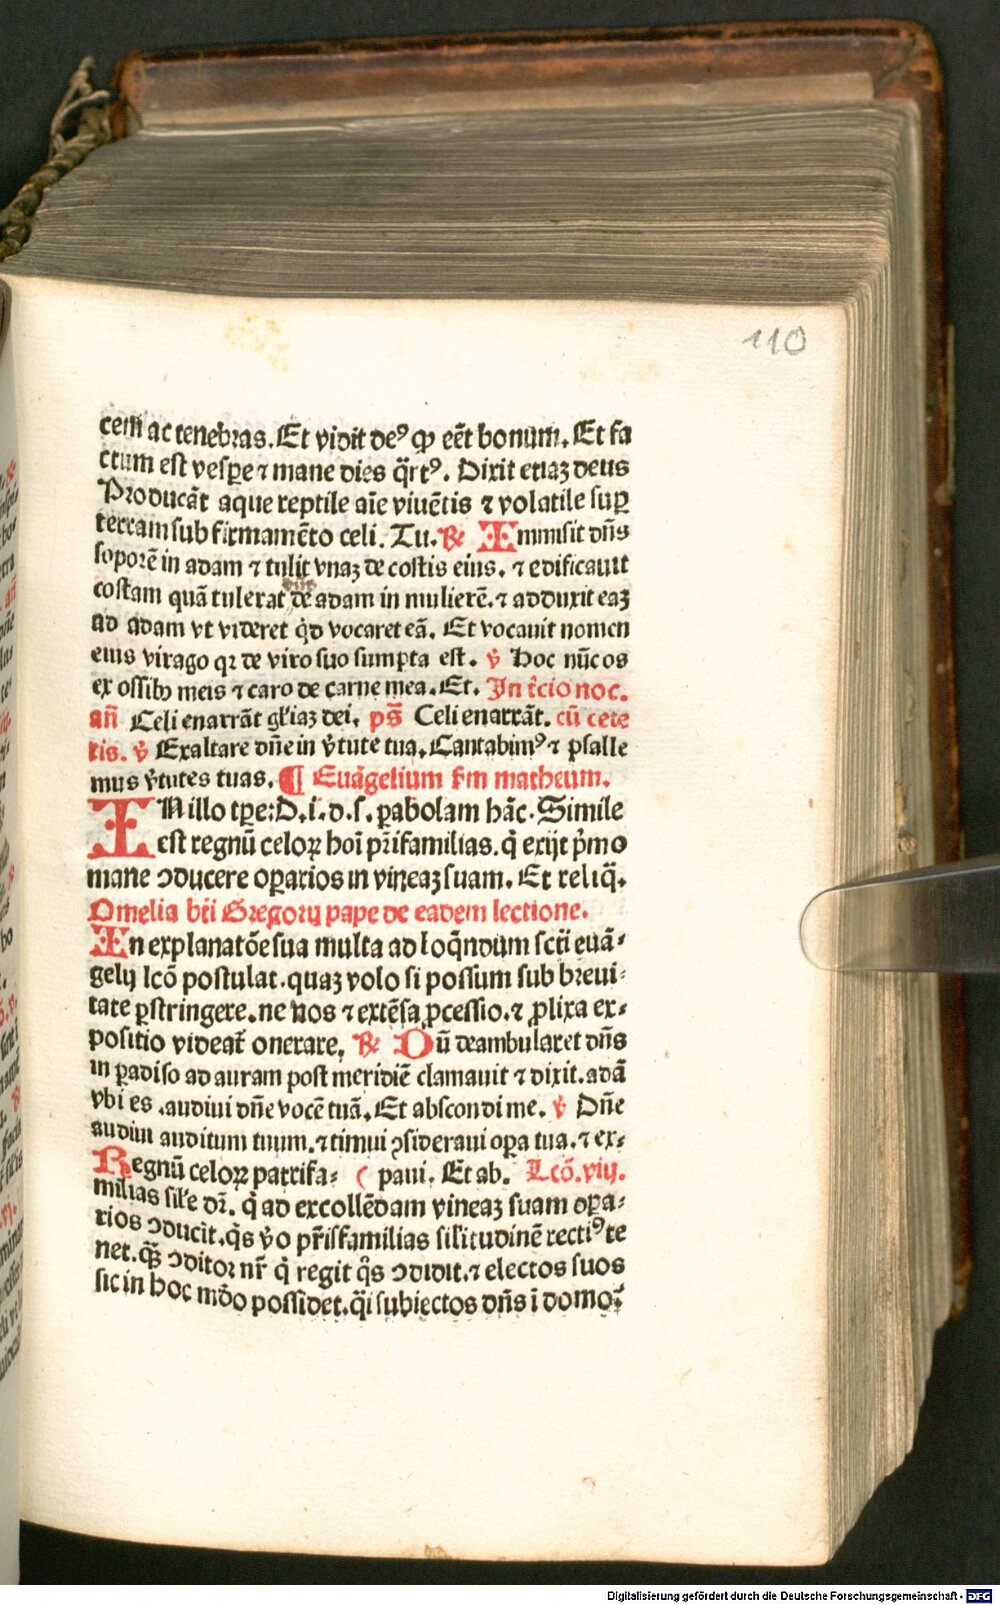 110
cem ac tenebras. Et vidit deꝰ ꝙ eēt bonum. Et fa
ctum est vespe ⁊ mane dies q̄rtꝰ. Dixit etiaꝫ deus
Producāt aque reptile aīe viuētis ⁊ volatile suꝑ
terram sub firmamēto celi. Tu. ℟ Immisit dn̄s
soporē in adam ⁊ tulit vnaꝫ de costis eius. ⁊ edificauit
costam quā tulerat de adam in mulierē. ⁊ adduxit eaꝫ
ad adam vt videret qͥd vocaret eā. Et vocauit nomen
eius virago qꝛ de viro suo sumpta est. ℣ Hoc nūc os
ex ossibꝫ meis ⁊ caro de carne mea. Et. In t̄cio noc.
an̄ Celi enarrāt gl'iaꝫ dei. ps̄ Celi enarrāt. cū cete
ris. ℣ Exaltare dn̄e in v̄tute tua. Cantabimꝰ ⁊ psalle
mus v̄tutes tuas. ¶ Euāgelium ẜm matheum.
IN illo tꝑe: D. i. d. s. ꝑabolam hāc. Simile
est regnū celoꝝ hoī pr̄ifamilias. q̄ exijt pͥmo
mane ↄducere oꝑarios in vineaꝫ suam. Et reliq̄.
Omelia bt̄i Gregorij pape de eadem lectione.
In explanatōe sua multa ad loq̄ndum sct̄i euā⸗
gelij lcō postulat. quaꝫ volo si possum sub breui⸗
tate ꝑstringere. ne vos ⁊ extēsa ꝓcessio. ⁊ ꝓlixa ex⸗
positio videat̄ onerare. ℟ Dū deambularet dn̄s
in ꝑadiso ad auram post meridiē clamauit ⁊ dixit. adā
vbi es. audiui dn̄e vocē tuā. Et abscondi me. ℣ Dn̄e
audiui auditum tuum. ⁊ timui ↄsideraui oꝑa tua. ⁊ ex⸗
Regnū celoꝝ patrifa⸗ ( paui. Et ab. Lcō. viij.
milias sil'e dr̄. q̄ ad excollēdam vineaꝫ suam oꝑa⸗
rios ↄducit. q̄s v̄o pr̄isfamilias sil'itudinē rectiꝰ te
net. qͣꝫ ↄditor nr̄ q̄ regit q̄s ↄdidit. ⁊ electos suos
sic in hoc mōo possidet. q̄i subiectos dn̄s ī domo⸗
Digitalisierung gefördert durch die Deutsche Forschungsgemeinschaft - DFG